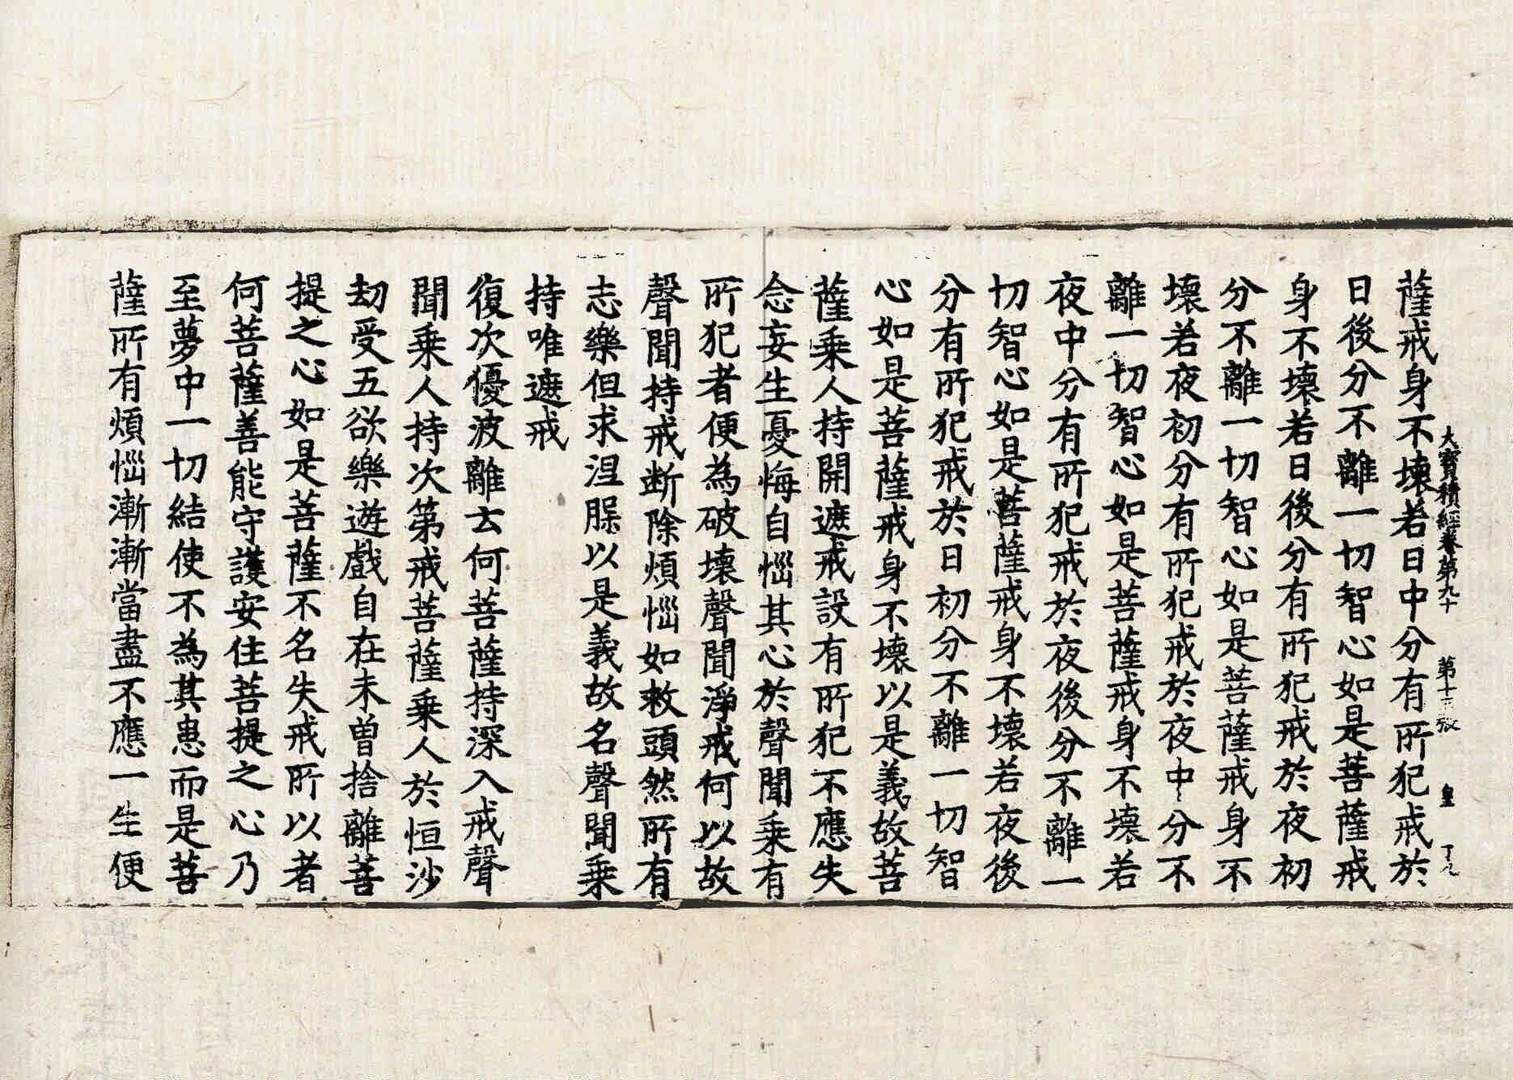 大寶積經卷第九十 第十三張 皇
薩戒身不壞若日中分有所犯戒於
日後分不離一切智心如是菩薩戒
身不壞若日後分有所犯戒於夜初
分不離一切智心如是菩薩戒身不
壞若夜初分有所犯戒於夜中分不
離一切智心如是菩薩戒身不壞若
夜中分有所犯戒於夜後分不離一
切智心如是菩薩戒身不壞若夜後
分有所犯戒於日初分不離一切智
心如是菩薩戒身不壞以是義故菩
薩乘人持開遮戒設有所犯不應失
念妄生憂悔自惱其心於聲聞乘有
所犯者便為破壞聲聞淨戒何以故
聲聞持戒断除煩惱如救頭然所有
志樂但求涅槃以是義故名聲聞乘
持唯遮戒
復次優波離云何菩薩持深入戒聲
聞乘人持次第戒菩薩乘人於恒沙
劫受五欲樂遊戲自在未曾捨離菩
提之心如是菩薩不名失戒所以者
何菩薩善能守護安住菩提之心乃
至夢中一切結使不為其患而是菩
薩所有煩惱漸漸當盡不應一生便